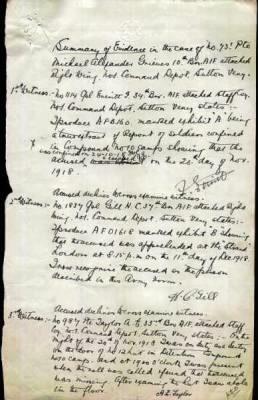 Summary of Evidence in the case of No. 731 Pte
Michael Alexander Grieves 10th Bn. A.I.F. attached
Right Wing, No1 Command Depot, Sutton Very.
1st Witness:- No 1114 Cpl 34th Bn. A.I.F. attached Staff Coy.
No1 Command Depot, Sutton Very, states:-
I produce A.F.B160, marked exhibit 'A' being
a true extract of Report of Soldiers confined
in Compound No 10 Camp, showing that the
accused on the 20th of Nov.
1918.
Accused declines to cross examine witness.
2nd Witness:- No 1837 Cpl Gill H.C. 37th Bn A.I.F. attached Right
Wing, No1 Command Depot, Sutton Very, states:-
I produce A.F.O1618 marked exhibit B showing
that accused was apprehended at the Strand
London at 8.15 p.m. on the 11th day of Dec 1918.
I now recognise the accused as the person
described in this Army Form.
H. C. Gill
Accused declines to cross examine witness.
3rd Witness:- No 987 Pte Taylor A. E. 35th Bn A.I.F. attached Staff
Coy, No1 Command Depot, Sutton Very, states:- On the
night of the 20th of Nov 1918 I was on duty as Sentry
on the door of No 12 hut in Detention Compound
No 10 Camp, and at 1900 o'clock I was present
when the roll was called & found that accused
was missing. After examining the hut I saw a hole
in the floor.
A.E. Taylor